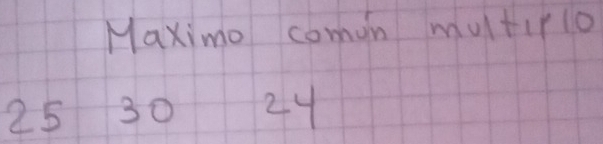 Maximo común multiplo
25 30 24